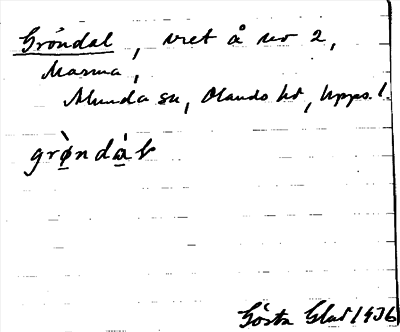 Gröndal, vret å nr 2,
Marma,
Älunda sn, Olands hd, Upps. l.
grò̤ndà̤l
Gösta Glad 1936